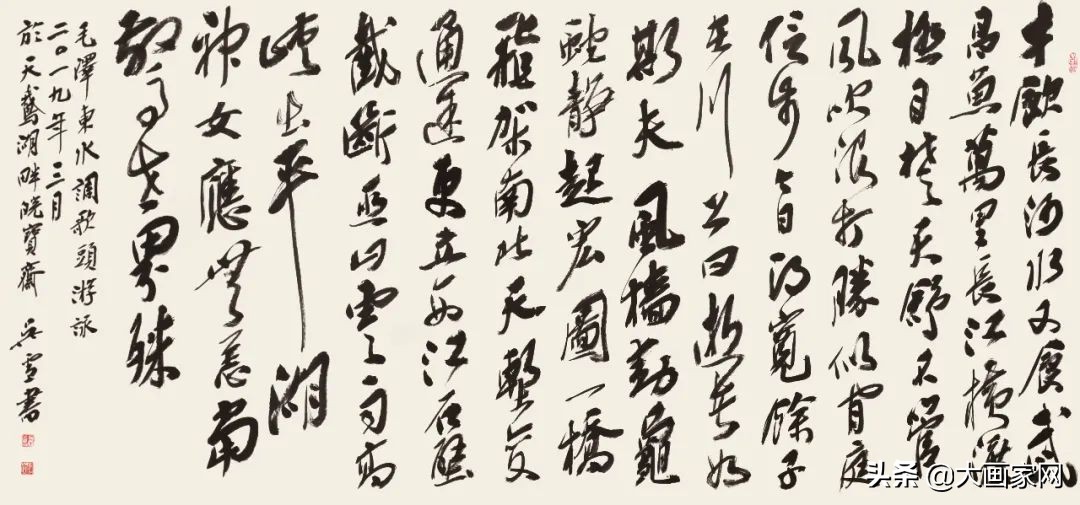 才飲長沙水又食武
昌魚萬里長江橫渡
極目楚天舒不管
風吹浪打勝似閒庭
信步今日得寬餘子
在川上曰逝者如
斯夫風檣動龜
蛇靜起宏圖一橋
飛架南北天塹變
通途更立西江石壁
截斷巫山雲雨高
峽出平湖
神女應無恙當
驚世界殊
毛澤東水調歌頭游泳
二〇一九年三月
於天鵝湖畔皖寶齋 吳雪書
头条 @大画家网